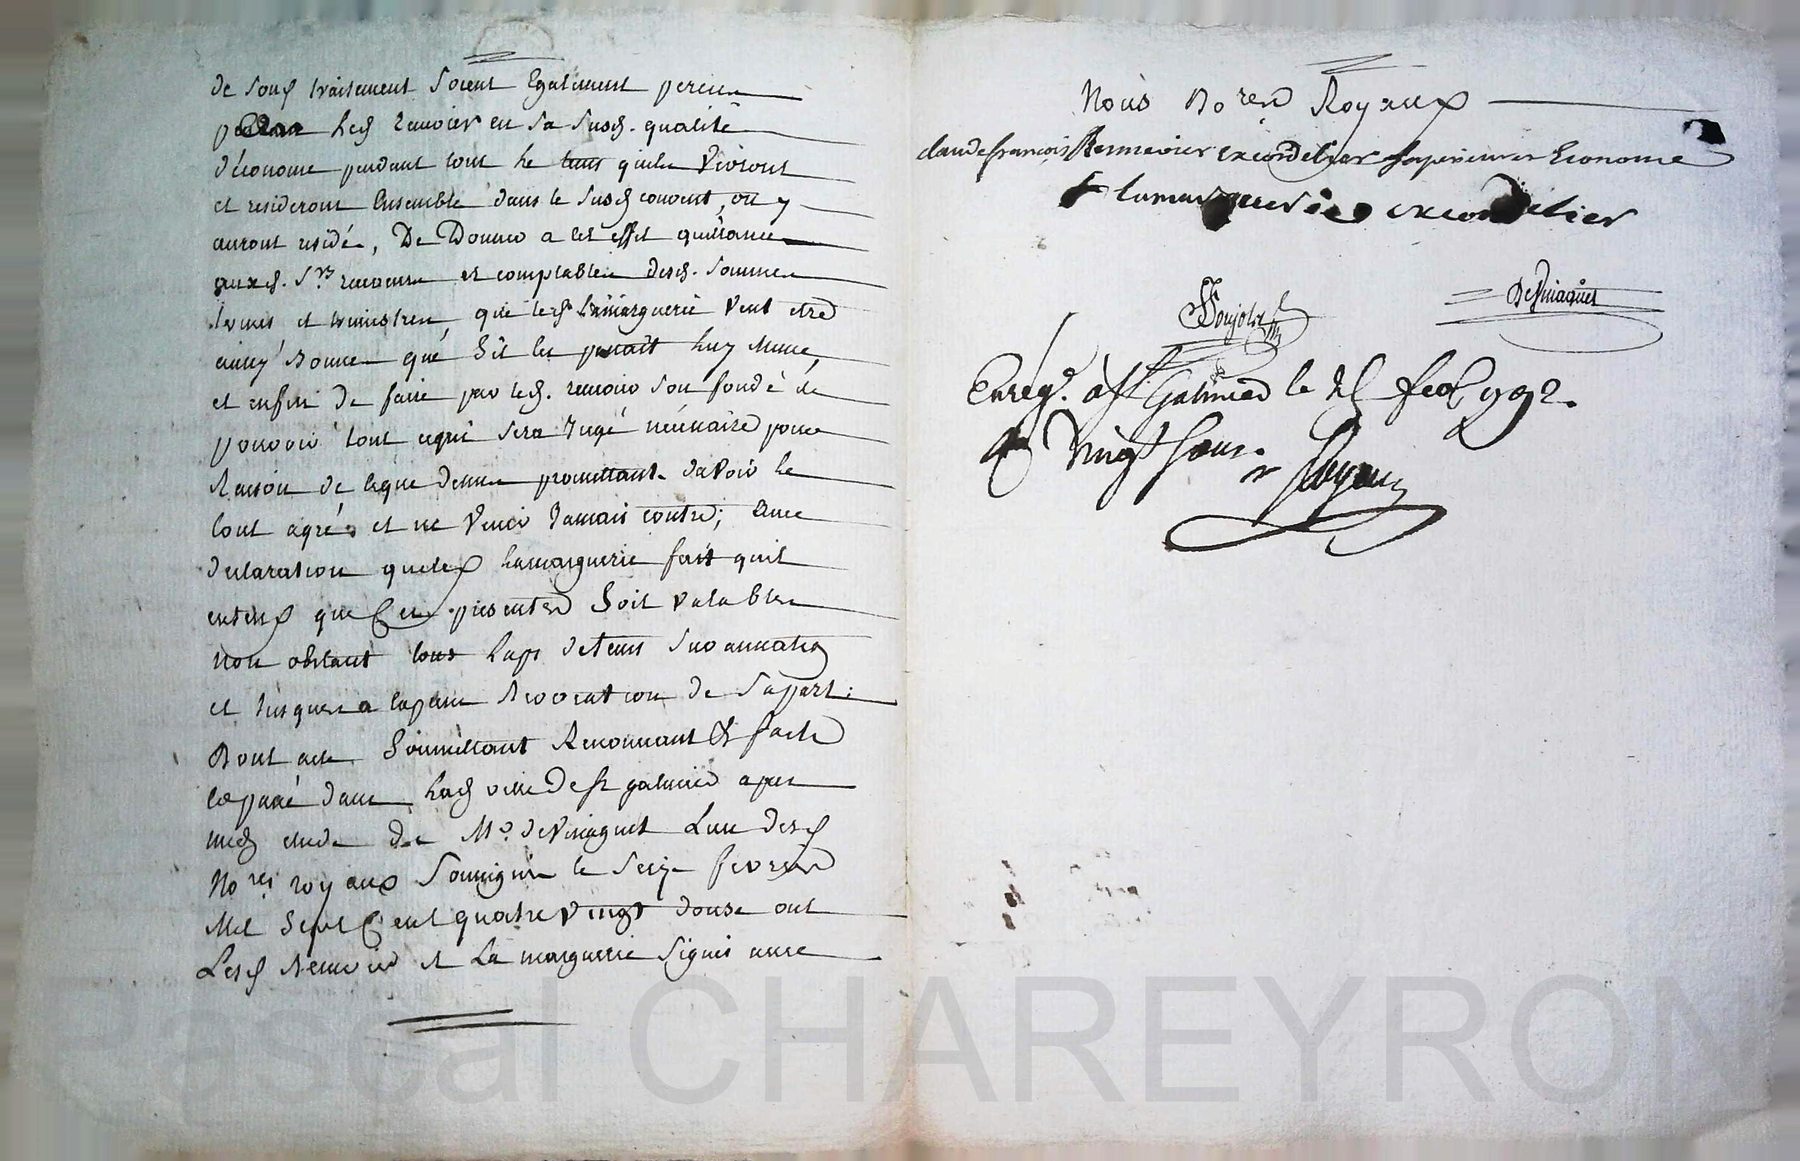 de sond traitement soient Egalement percus
par led renvoier en sa susd. qualité
d'économe pendant tout le tems quils vivront
et resideront Ensemble dans le susd couvent, ou y
auront residé, De Donner a cet effet quittances
auxd. Srs receveurs et comptables desd. sommes
termes et trimestres, que led Lamarguerie veut etre
aussy bonnes que sil les passait luy meme,
et enfin de faire par led. renvoier son fondé de
pouvoir tout ce qui sera Jugé nécessaire pour
Raison de ce que dessus promettant davoir le
tout agréé et ne venir Jamais contre; avec
declaration que led Lamarguerie fait quil
entend que Ces presentes soit valables
non obstant tous laps de tems surannation
et Jusques a expresse Revocation de sa part:
Dont acte Soumettant Renoncant & fait
et passé dans lad ville de st galmier apres
midy etude de Me. deVinaguet Lun desd
Nores royaux soussignés le seize fevrier
Mil sept Cent quatre vingt douze ont
Lesd renvoier et La marguerie signés avec
Nous Nores Royaux
claude françois Renvoier excordelier superieur et Econome
f lamarguerie excordelier
DeVinaguet
Enreg. a St Galmier le 25 fev 1792.
R vingt sous.